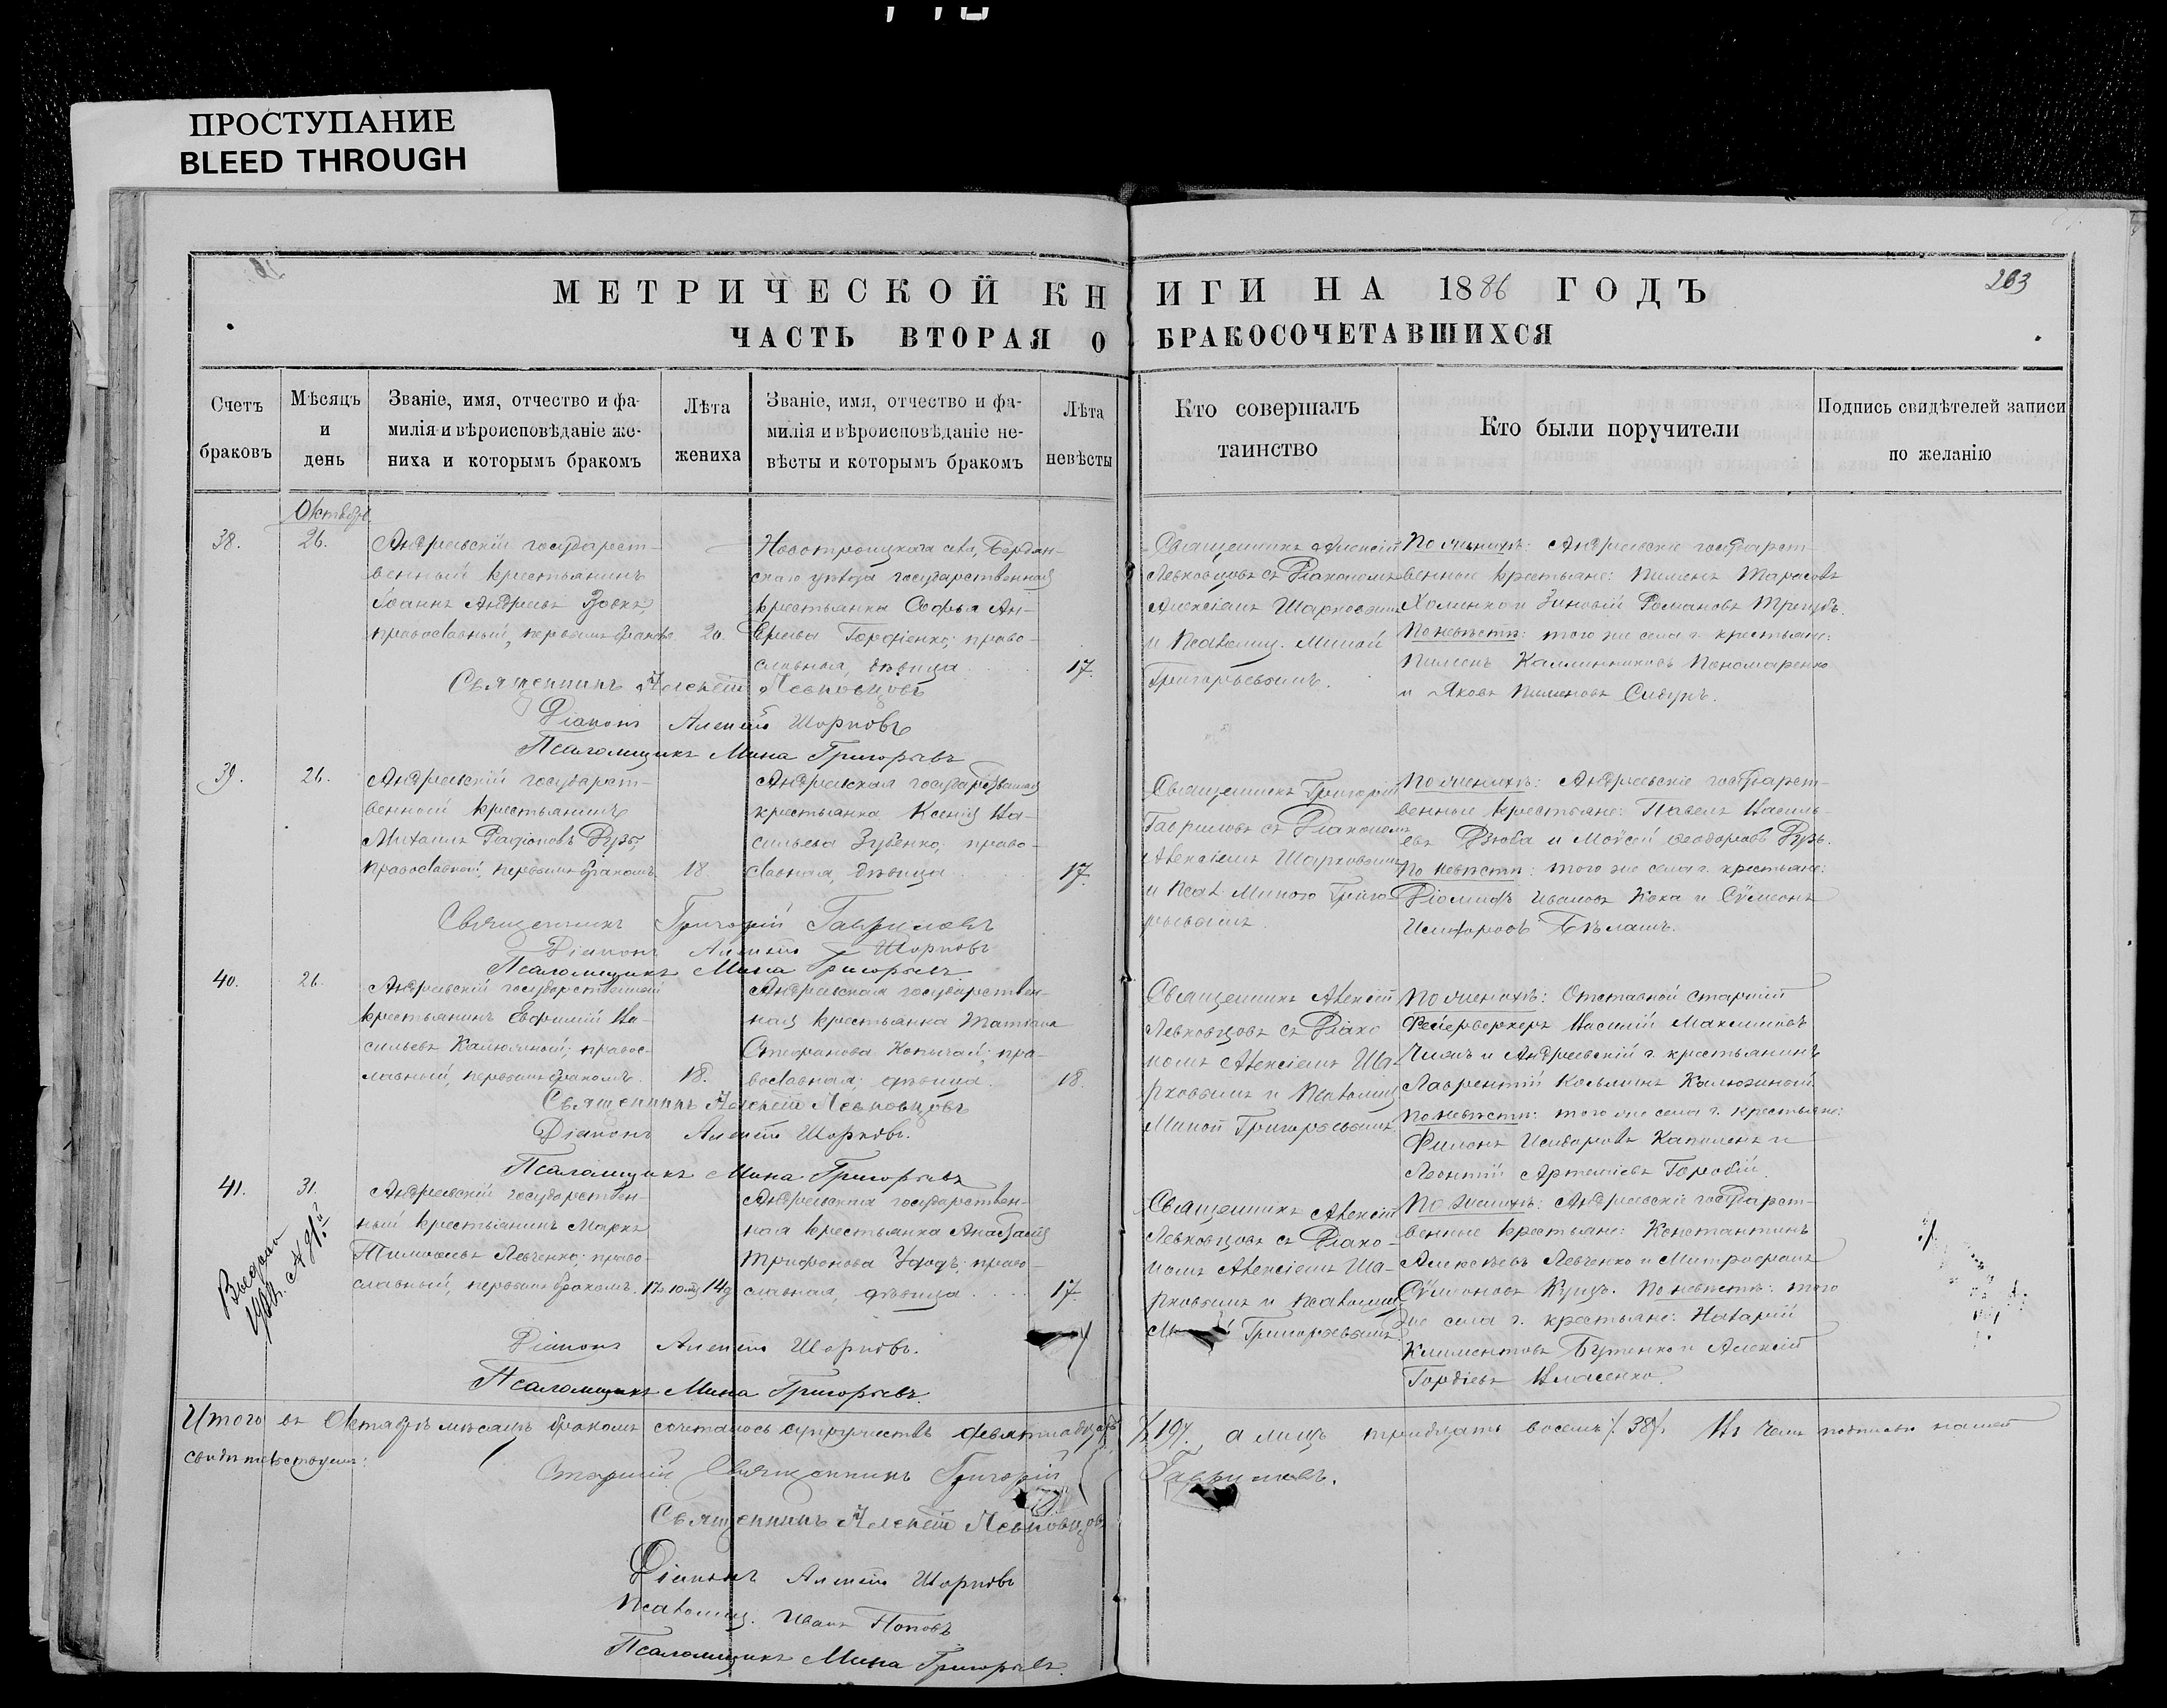 ПРОСТУПАНИЕ
BLEED THROUGH
МЕТРИЧЕСКОЙ КНИГИ НА 1886 ГОДЪ
263
ЧАСТЬ ВТОРАЯ О БРАКОСОЧЕТАВШИХСЯ
Счетъ браковъ
Мѣсяцъ и день
Званіе, имя, отчество и фа-
милія и вѣроисповѣданіе же-
ниха и которымъ бракомъ
Лѣта жениха
Званіе, имя, отчество и фа-
милія и вѣроисповѣданіе не-
вѣсты и которымъ бракомъ
Лѣта невѣсты
Кто совершалъ
таинство
Кто были поручители
Подпись свидѣтелей записи
по желанію
Октябрь
38.
26.
Андреевскій государст-
венный крестьянинъ
Іоаннъ Андреевъ
православный, первымъ бракомъ
20.
Новотроицкаго села, Бердян-
скаго уѣзда государственная
крестьянка Софья Ан-
дреева Гордіенко; право-
славная, дѣвица
17.
Священникъ Алексій
Левковцовъ съ Діакономъ
Алексіемъ Шарковымъ
и Псаломщ. Миной
Григорьевымъ.
По женихѣ: Андреевскіе государст-
венные крестьяне: Пименъ Тарасовъ
и Зиновій Романовъ
По невѣстѣ: того же села г. крестьяне:
Пименъ Каллинниковъ Пономаренко
и Яковъ Пименовъ
Священникъ Алексій Левковцовъ
Діаконъ Алексій Шарковъ
Псаломщикъ Мина Григорьевъ
39.
26.
Андреевскій государст-
венный крестьянинъ
Михаилъ
православный, первымъ бракомъ
18
Андреевская государственная
крестьянка Ксенія Ва-
сильева Зубенко; право-
славная, дѣвица
17.
Священникъ Григорій
Гавриловъ съ Діакономъ
Алексіемъ Шарковымъ
и Псал. Миною Григо-
рьевымъ
По женихѣ: Андреевскіе государст-
венные крестьяне: Павелъ Василь-
евъ Дзюба и Моѵсей Ѳеодоровъ
По невѣстѣ: того же села г. крестьяне:
Діомидъ Ивановъ и Сѵмеонъ
Никифоровъ Бѣлашъ.
Священникъ Григорій Гавриловъ
Діаконъ Алексій Шарковъ
Псаломщикъ Мина Григорьевъ
40.
26.
Андреевскій государственный
крестьянинъ Евфимій Ва-
сильевъ Калюжный; правос-
лавный, первымъ бракомъ.
18.
Андреевская государствен-
ная крестьянка Татіана
Стефанова Копычай; пра-
вославная; дѣвица.
18.
Священникъ Алексій
Левковцовъ съ Діако-
номъ Алексіемъ Ша-
рковымъ и Псаломщ.
Миной Григорьевымъ.
По женихѣ: Отставной старшій
Фейерверкеръ Василій Максимовъ
и Андреевскій г. крестьянинъ
Лаврентій Косьминъ Калюжный.
По невѣстѣ: того же села г. крестьяне:
Филонъ Исидоровъ и
Леонтій Артемьевъ
Священникъ Алексій Левковцовъ
Діаконъ Алексій Шарковъ.
Псаломщикъ Мина Григорьевъ
41.
31.
Андреевскій государствен-
ный крестьянинъ Маркъ
Тимоѳеевъ Левченко; право-
славный, первымъ бракомъ.
Андреевская государствен-
ная крестьянка Анастасія
Трифонова; право-
славная, дѣвица
17.
Священникъ Алексій
Левковцовъ съ Діако-
номъ Алексіемъ Ша-
рковымъ и Псаломщ.
Григорьевымъ
По женихѣ: Андреевскіе государст-
венные крестьяне: Константинъ
Алексѣевъ Левченко и Митрофанъ
Сѵмеоновъ Куцъ. По невѣстѣ: того
же села г. крестьяне: Назарій
Климентовъ Бутенко и Алексій
Гордіевъ Власенко.
Діаконъ Алексій Шарковъ.
Псаломщикъ Мина Григорьевъ.
Итого въ Октябрѣ мѣсяцѣ бракомъ сочеталось супружествъ девятнадцать /:19/. а лицъ тридцать восемь /:38/. Въ чемъ подписью нашею
свидѣтельствуемъ:
Старшій Священникъ Григорій Гавриловъ.
Священникъ Алексій Левковцовъ
Діаконъ Алексій Шарковъ
Псаломщ. Иванъ Поповъ
Псаломщикъ Мина Григорьевъ.